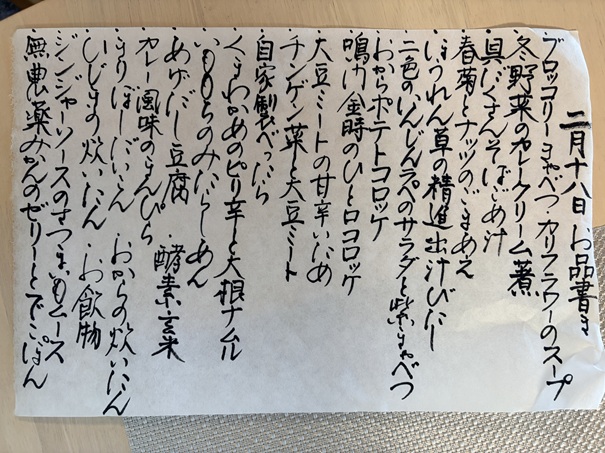 二月十八日 お品書き
ブロッコリーキャベツ・カリフラワーのスープ
冬野菜のカレークリーム煮
具だくさんそばごめ汁
春菊とナッツのごまあえ
ほうれん草の精進出汁びたし
二色のにんじんラペのサラダと紫キャベツ
おからポテトコロッケ
鳴門金時のひと口コロッケ
大豆ミートの甘辛いため
チンゲン菜と大豆ミート
自家製べったら
くきわかめのピリ辛と大根ナムル
いももちのみたらしあん
あげだし豆腐 酵素玄米
カレー風味のきんぴら
きりぼしだいこん おからの炊いたん
ひじきの炊いたん お飲物
ジンジャーソースのさつまいもムース
無農薬みかんのゼリーとでこぽん